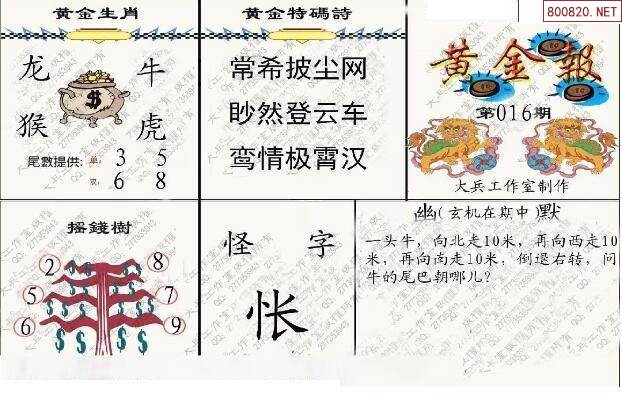 800820.NET
黄金生肖
龙 牛
猴 虎
尾數提供: 单: 3 5
双: 6 8
黄金特碼詩
常希披尘网
眇然登云车
鸾情极霄汉
黄金報
第016期
大兵工作室制作
摇錢樹
2 8
5 7
6 9
怪 字
怅
幽(玄机在期中)默
一头牛，向北走10米，再向西走10
米，再向南走10米，倒退右转，问
牛的尾巴朝哪儿?